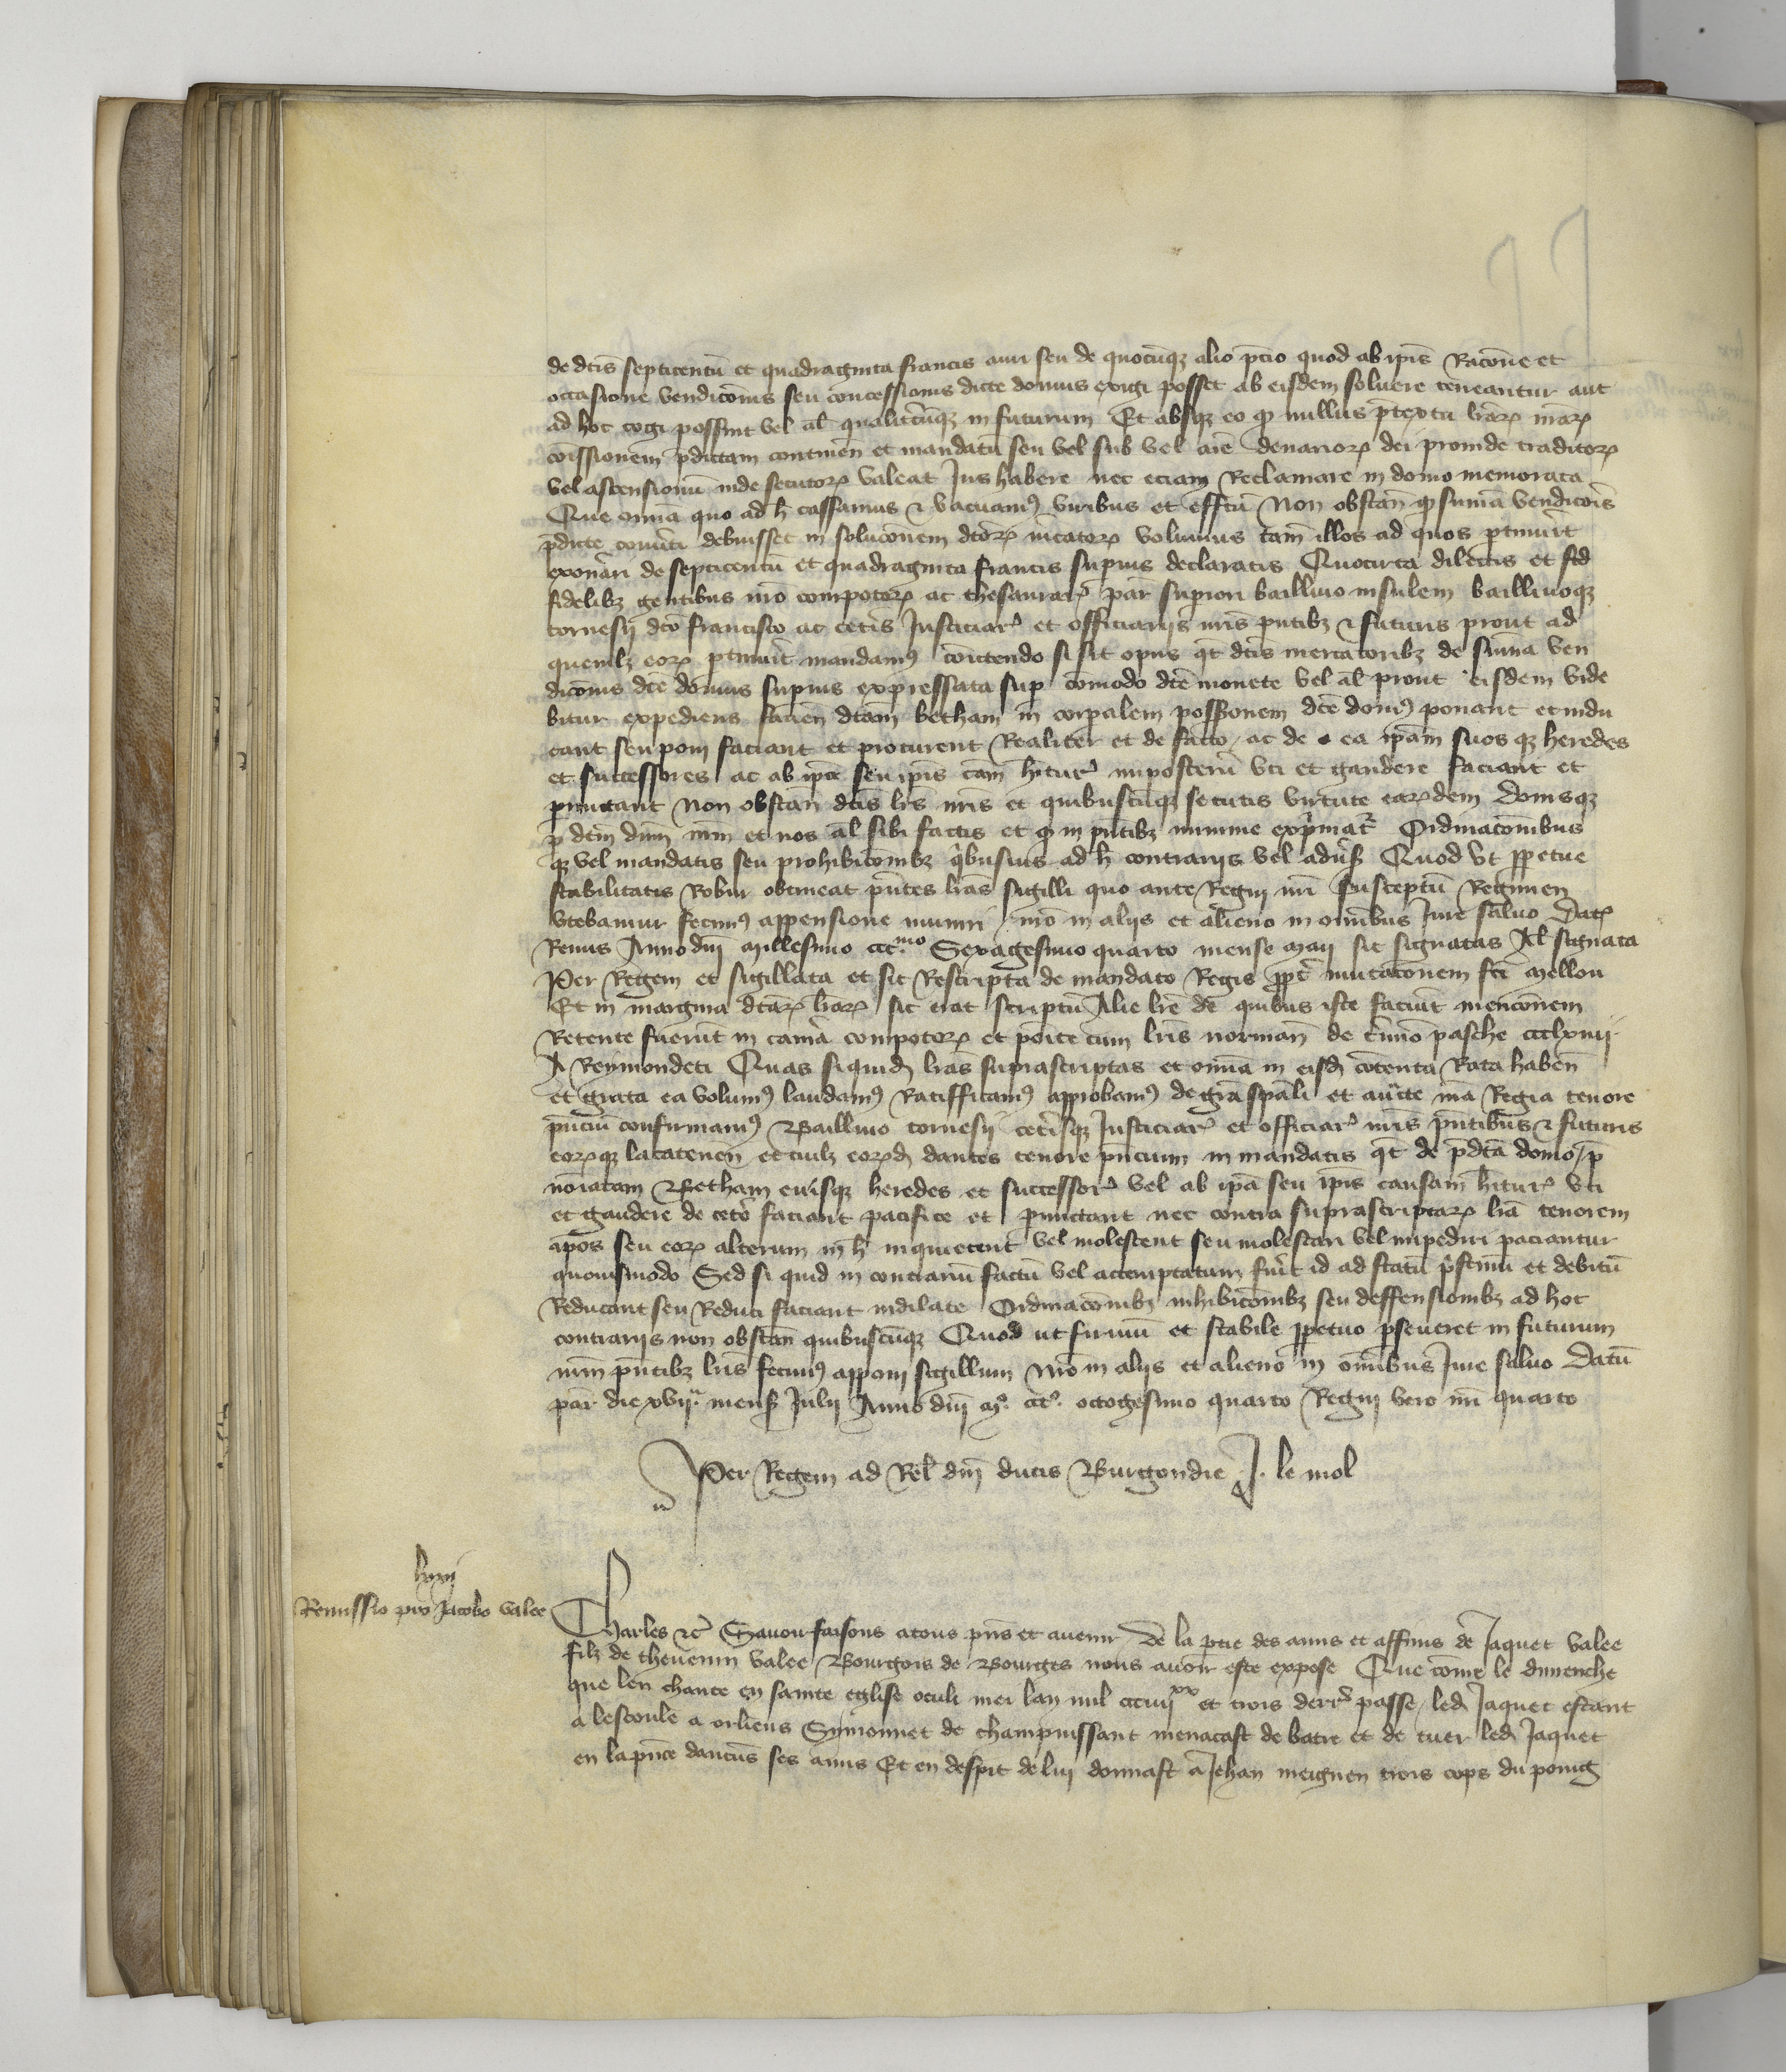 de dcis septicentu et quadraginta francis auri seu de quocuqz alio pcio quod ab ipis Racone et
occasione vendicois seu concessionis dicte domus exigi posset ab eisdem soluere teneantur aut
ad hoc cogi possint vel al qualitcuqz in futurum Et absqz eo q nullus ptextu lrar nrar
coissionem pdictam continen et mandatu seu vel sub vel denarior dei proinde traditor
vel ascensionu inde secutor valeat Jus habere nec eciam Reclamare in domo memorata
Que omia quo ad h cassamus & vacuam9 viribus et effcu Non obstan q suma vendicois
pdicte couti debuisset in solucoem dcor mcator volumus tam illos ad quos ptinuit
exonari de septicentu et quadraginta francis supius declaratis Quocirca dilectis et fid
fidelibz gentibus nro compotor ac thesaurar par supiori baillivo insulem baillivoqz
tornesii dco francisco ac cetis Justiciar et officiariis nris pntibz & futuris prout ad
quemlz eor ptinuit mandam9 comittendo si sit opus qt dcis mercatoribz de suma ven
dicois dce domus supius expressata sup comodo dce monete vel al prout eisdem vide
bitur expediens facien dcam betham in corpalem possionem dce dom9 ponant et indu
cant seu poni faciant et procurent Realiter et de facto ac de ea ipam suos qz heredes
et successores ac ab ipa seu ipis cam hitur imposteru uti et gaudere faciant et
pmittant non obstan dcis lris nris et quibuscuqz secutis virtute eardem donisqz
p dcm dnm nrm et nos al sibi factis et q in pntibz minime exprimat Ordinacoibus
qz vel mandatis seu prohibicoibz quibusuis ad h contrariis vel aduis Quod ut ppetue
stabilitatis Robur obtineat pntes lras sigilli quo ante Regni nri susceptu Regimen
utebamur fecim9 appensione muniri nro in aliis et alieno in omibus Jure saluo Dat
Remis Anno dni Millesimo ccc.mo Sexagesimo quarto mense maii sic signatas Al signata
Per Regem et sigillata et sic Rescripta de mandato Regis ppt mutacoem fci Mellou
Et in margina dcar lrar sic erat scriptu Alie lre de quibus iste faciut mencoem
Retente fuerut in cama compotor et poite cum lris norman de tmino pasche ccclxiiii
A Reymondeti Quas siquid lras suprascriptas et omia in eisd cotenta Rata haben
et grata ea volum9 laudam9 Ratifficam9 approbam9 de gra spali et aucte nra Regia tenore
pnciu confirmam9 Baillivo tornesii cetisqz Justiciar et officiar nris pntibus & futuris
eorqz locatenen et cuilz eord dantes tenore pncium in mandatis qt de pdca domo p
noiatam Betham eiusqz heredes et successor vel ab ipa seu ipis causam hitur uti
et gaudere de ceto faciant pacifice et pmittant nec contra suprascriptar lra tenorem
ipos seu eor alterum in h inquietent vel molestent seu molestari vel impediri paciantur
quouismodo Sed si quid in contrariu factu vel attemptatum fuit id ad statu pstinu et debitu
Reducant seu Reduci faciant indilate Ordinacoibz inhibicoibz seu deffensionibz ad hoc
contrariis non obstan quibuscuqz Quod ut firmu et stabile ppetuo pseueret in futurum
nrm pntibz lris fecim9 apponi sigillum Nro in aliis et alieno in omibus Jure saluo Datu
par die xvii.a mens Julii Anno dni m.o ccc.o octogesimo quarto Regni vero nri quarto
Per Regem ad Rel dni ducis Burgondie J. le mol
lxxij
Remissio pro Jacobo valee
Charles &c Sauoir faisons a tous pns et auenir De la ptie des amis et affins de Jaquet valee
filz de theuenin valee Bourgois de Bourges nous auoir este expose Que come le dimenche
que len chante en sainte eglise oculi mei lan mil ccciiii xx et trois derr passe led Jaquet estant
a lescoule a orliens Symonnet de champuissant menacast de batre et de tuer led Jaquet
en la pnce daucuns ses amis Et en despit de lui donnast a Jehan meignen trois cops du poing